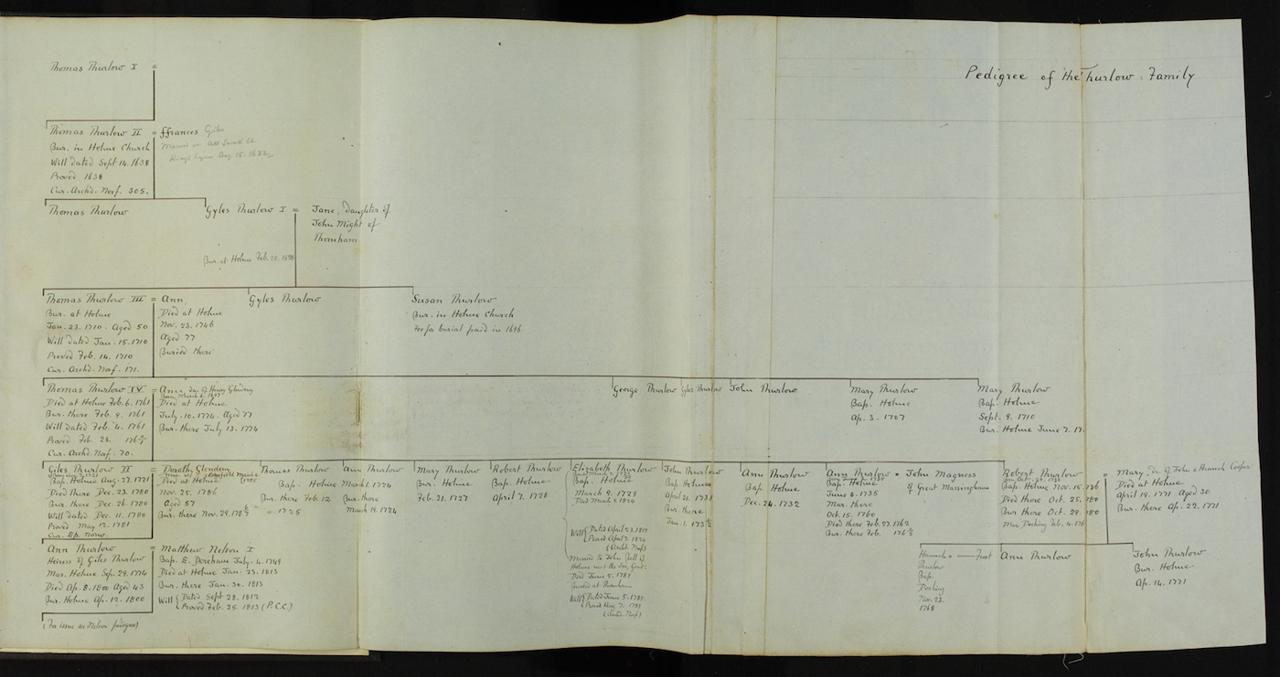 Pedigree of the Thurlow Family
Thomas Thurlow I =
Thomas Thurlow II = ffrances Giles
Bur. in Holme Church
Will dated Sept 14. 1638
Proved 1638
Cur. Archd. Norf. 305.
Thomas Thurlow
Gyles Thurlow I =
Bur. at Holme Feb. 20.
Jane, daughter of
John Might of
Thornham
Thomas Thurlow III =
Bur. at Holme
Jan. 23. 1710. Aged 50
Will dated Jan. 15. 1710
Proved Feb. 14. 1710
Cur. Archd. Norf. 171.
Ann
Died at Holme
Nov. 23. 1746
Aged 77
Buried there
Gyles Thurlow
Susan Thurlow
Bur. in Holme Church
Fee for burial paid in 1696
Thomas Thurlow IV =
Died at Holme Feb. 6. 1761
Bur. there Feb. 9. 1761
Will dated Feb. 4. 1761
Proved Feb. 28.
Cur. Archd. Norf. 70.
Ann, da. of Henry
Died at Holme
July. 10. 1774. Aged 77
Bur. there July 13. 1774
George Thurlow
Gyles Thurlow
John Thurlow
Mary Thurlow
Bap. Holme
Ap. 3. 1707
Mary Thurlow
Bap. Holme
Sept. 9. 1710
Bur. Holme June 7. 17
Giles Thurlow II =
Bap. Holme Aug. 27.
Died there Dec. 23. 1780
Bur. there Dec. 26. 1780
Will dated Dec. 11. 1780
Proved May 12. 1781
Cur. Ep. Norw.
Dorothy Glendon
Died at Holme
Nov. 25. 1786
Aged 57
Bur. there Nov. 29. 178
Thomas Thurlow
Bap. Holme
Bur. there Feb. 12
1725
Ann Thurlow
March 1. 1724
Bur. there
March 14. 1724
Mary Thurlow
Bur. Holme
Feb. 21. 1727
Robert Thurlow
Bap. Holme
April 7. 1728
Elizabeth Thurlow
Bap. Holme
March 9. 1729
Will Dated April 23.
Proved April
(Archd. Norf)
Married to John Bell of
Holme next the Sea, Gent.
Died June 5. 1789
Buried at
Will Dated June 5. 1789
Proved
(Archd. Norf)
John Thurlow
Bap. Holme
April 21. 173
Bur. there
Jan. 1. 173
Ann Thurlow
Bap. Holme
Dec. 24. 1732
Ann Thurlow =
Bap. Holme
June 8. 1735
Mar. there
Oct. 15. 1760
Died there Feb. 23. 1762
Bur. there Feb.
John Magness
of Great Massingham
Robert Thurlow =
Bap. Holme Nov. 15. 1736
Died there Oct. 25. 1780
Bur there Oct. 29. 1780
Mar. Docking Feb. 4.
Mary, da. of John & Hannah Cooper
Died at Holme
April 19. 1771. Aged 30
Bur. there Ap. 22. 1771
Ann Thurlow =
Heiress of Giles Thurlow
Mar. Holme Sep. 29. 1774
Died Ap. 8. 1800 Aged 43
Bur. Holme Ap. 12. 1800
Matthew Nelson I
Bap. E. Dereham July. 4. 1749
Died at Holme Jan. 23. 1813
Bur. there Jan. 30. 1813
Will Dated Sept 28. 1812
Proved Feb. 25. 1813 (P.C.C.)
Hannah =
Thurlow
Bap.
Docking
Nov. 23.
1768
Ann Thurlow
John Thurlow
Bur. Holme
Ap. 14. 1771
(For issue see Nelson pedigree)